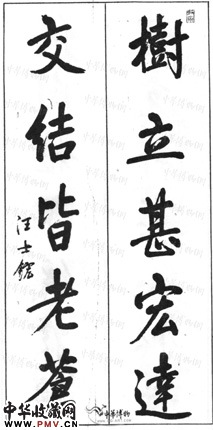 樹立甚宏達
交結皆老蒼
汪士鋐
中华收藏网
www.PMV.CN
中华博物